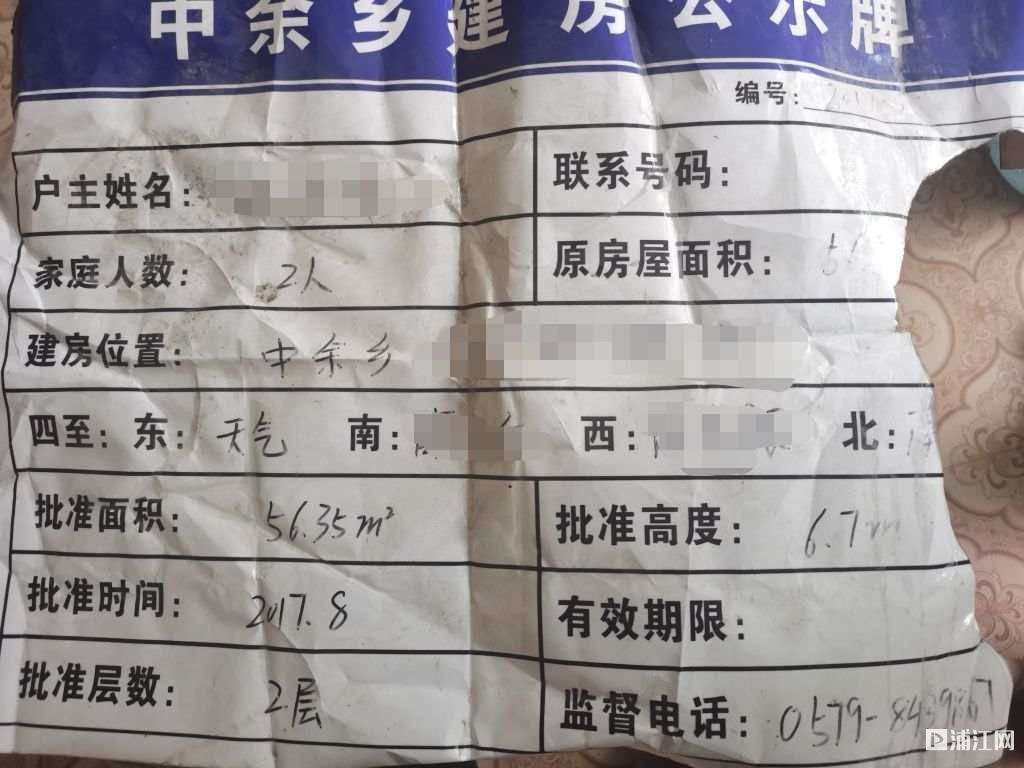 中余乡建房公示牌
编号:
户主姓名: 联系号码:
家庭人数: 2人 原房屋面积:
建房位置: 中余乡
四至: 东: 天气 南: 西: 北:
批准面积: 56.35m² 批准高度: 6.7m
批准时间: 2017.8 有效期限:
批准层数: 2层 监督电话: 0579-
浦江网